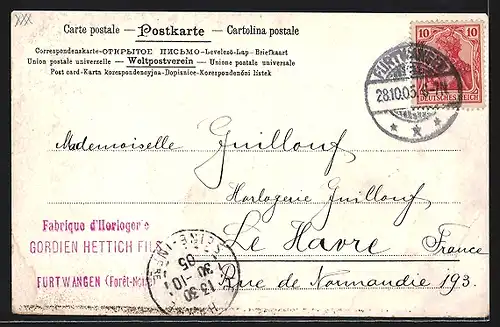 Carte postale — Postkarte — Cartolina postale
Correspondenzkarte-ОТКРЫТОЕ ПИСЬМО-Levelező-Lap-Briefkaart
Union postale universelle — Weltpostverein — Unione postale universale
Post card-Karta korespondencyjna-Dopisnice-Korespondenční lístek
10 10
DEUTSCHES REICH
FURTWANGEN
28.10.05. 6-7N
Mademoiselle Guillouf
Horlogerie Guillouf
Le Havre
France
Rue de Normandie 193.
Fabrique d'Horlogerie
GORDIEN HETTICH FILS
FURTWANGEN (Forêt-Noire)
13 30
30 10
05